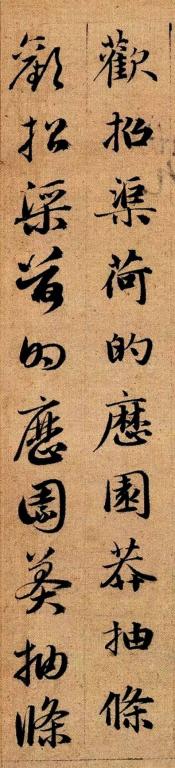 歡招渠荷的歷園莽抽條
歡招渠荷的歷園莽抽條